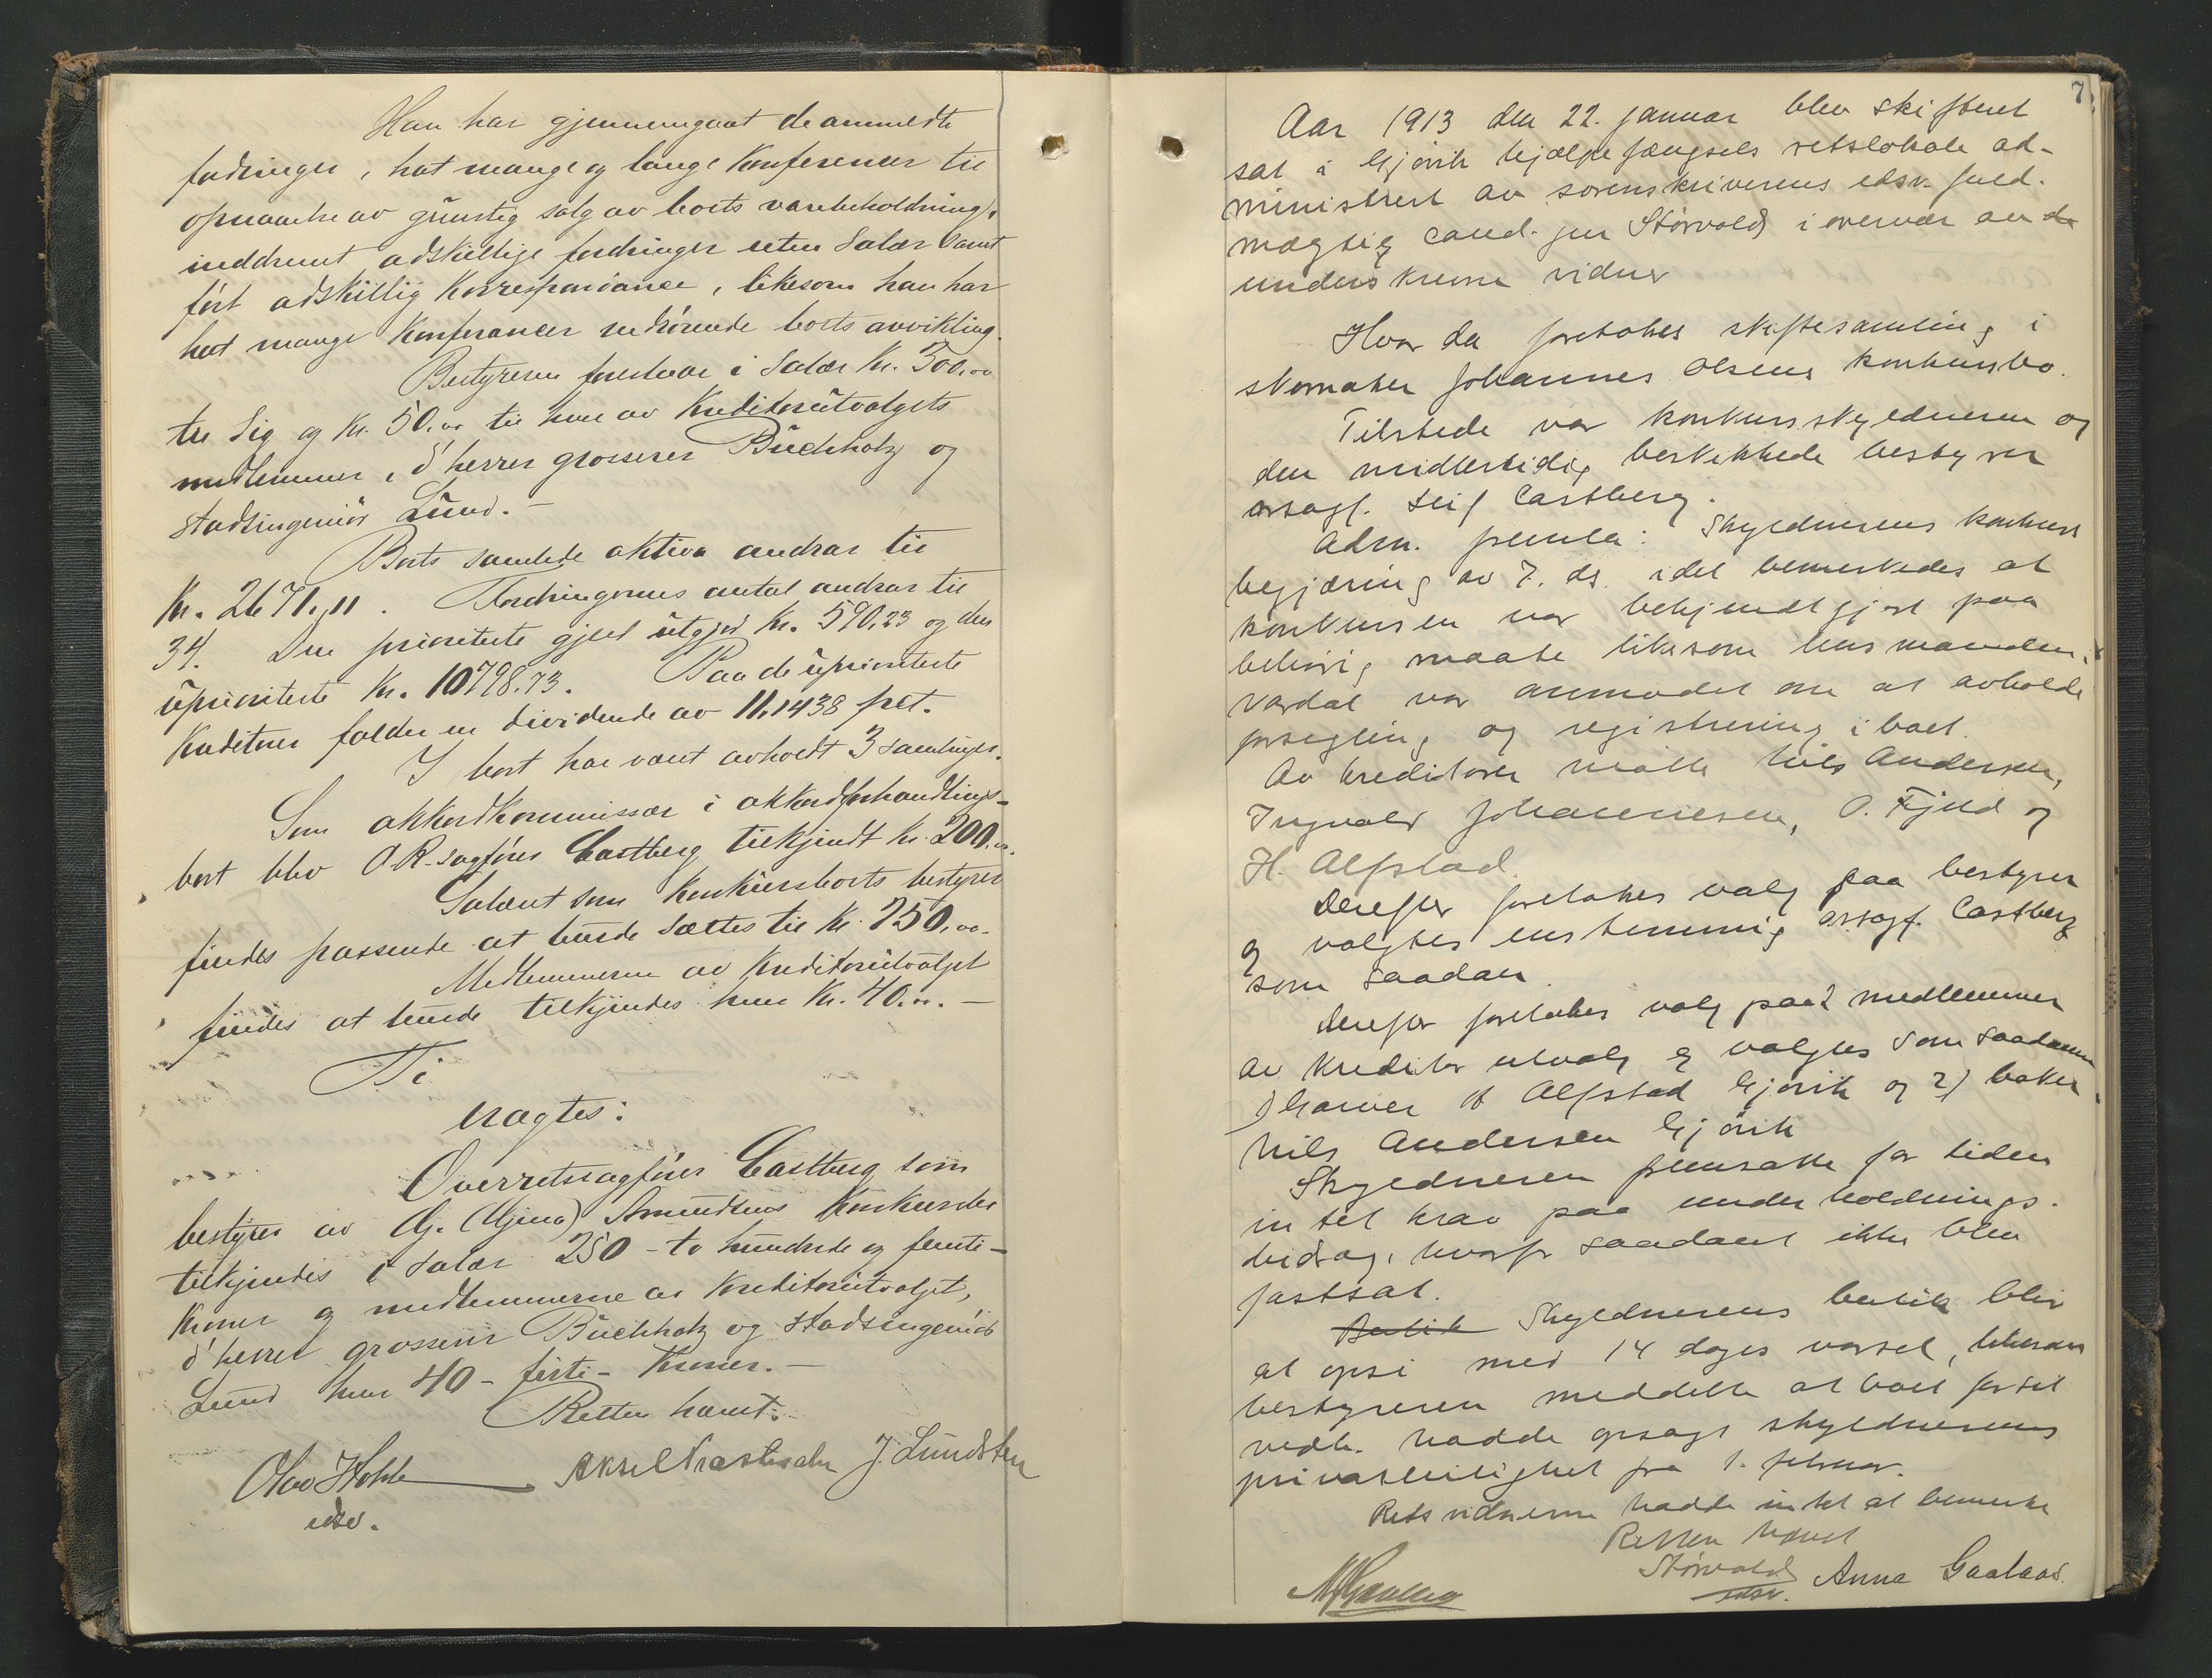 Han har gjennemgaat de anmeldte
fordringer, hat mange og lange Konferencer til
opnaaelse av gunstig salg av boets varebeholdning,
inddrevet adskillige fordringer uten Salær samt
ført adskillig Korrespondance, likesom han har
hat mange Konferancer vedrørende boets avvikling.
Bestyreren foreslaar i Salær Kr. 300.00
til sig og Kr. 50.00 til hver av Kreditorutvalgets
medlemmer, d'herrer grosserer Buchholz og
stadsingeniør Lund. –
Boets samlede aktiva andrar til
Kr. 2671.11. Fordringernes antal andrar til
34. Den prioriterte gjæld utgjør Kr. 590.23 og den
uprioriterte Kr. 10798.73. Paa de uprioriterte
Kreditorer falder en dividende av 11.1438 pct.
I boet har været avholdt 3 samlinger.
Som akkordkommissær i akkordforhandlings-
boet blev O.R.sagfører Castberg tilkjendt Kr. 200.00.
Salæret som Konkursboets bestyrer
findes passende at burde sættes til Kr. 250.00.
Medlemmerne av Kreditorutvalget
findes at burde tilkjendes hver Kr. 40.00. –
Ti
eragtes:
Overretssagfører Castberg som
bestyrer av Gj. (Gjina) Amundsens Konkursbo
tilkjendes i Salær 250 – to hundrede og femti –
Kroner og medlemmerne av Kreditorutvalget,
d'herrer grosserer Buchholz og stadsingeniør
Lund hver 40 – firti – Kroner. –
Retten hævet.
Olav Hohle Aksel J. Lundsten
edsv.
7
Aar 1913 den 22. januar blev skifteret
sat i Gjøvik hjælpefængsels retslokale ad-
ministrert av sorenskriverens edsv. fuld-
mægtig cand. jur Størvold i overvær av de
underskrevne vidner
Hvor da foretokes skiftesamling i
skomaker Johannes Olsens konkursbo.
Tilstede var konkursskyldneren og
den midlertidig beskikkede bestyrer
orsagf. Leif Castberg.
Adm. fremla: Skyldnerens konkurs
begjæring av 7. ds. idet bemerkedes at
konkursen var bekjendtgjort paa
behørig maate likesom lensmanden i
Vardal var anmodet om at avholde
forsegling og registrering i boet.
Av kreditorer møtte Nils Andersen,
Ingvald Johannesen, O. Fjeld og
H. Alfstad.
Derefter foretokes valg paa bestyrer
og valgtes enstemmig orsagf. Castberg
som saadan.
Derefter foretokes valg paa 2 medlemmer
av kreditor utvalg og valgtes som saadanne
1) Garver H Alfstad Gjøvik og 2) baker
Nils Andersen Gjøvik
Skyldneren fremsatte for tiden
intet krav paa underholdnings-
bidrag, hvorfor saadant ikke blev
fastsat.
Butik Skyldnerens butik blir
at opsi med 14 dages varsel, likesom
bestyreren meddelte at boet for sit
vedk. hadde opsagt skyldnerens
privatleilighet fra 1. februar.
Retsvidnerne hadde intet at bemerke
Retten hævet
Størvold Anna Gaalaas
edsv.